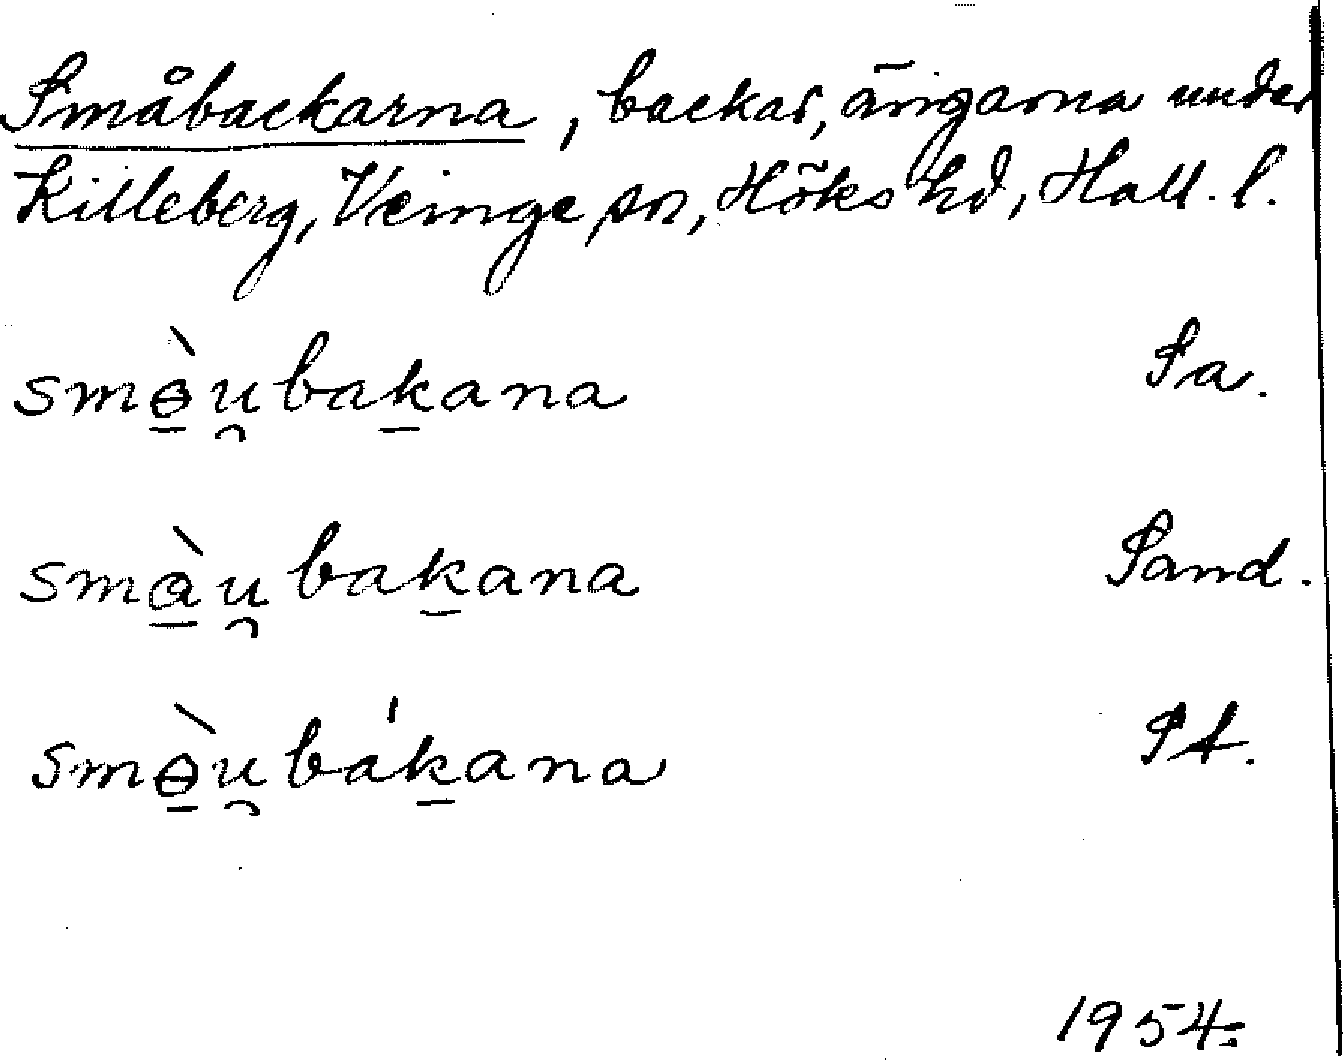 Småbackarna, backar, ängarna under
Killeberg, Veinge sn, Höks hd, Hall. l.
smə̱̀u̯baḵana Sa.
smà̱u̯baḵana Sand.
smə̱̀u̯báḵana St.
1954.